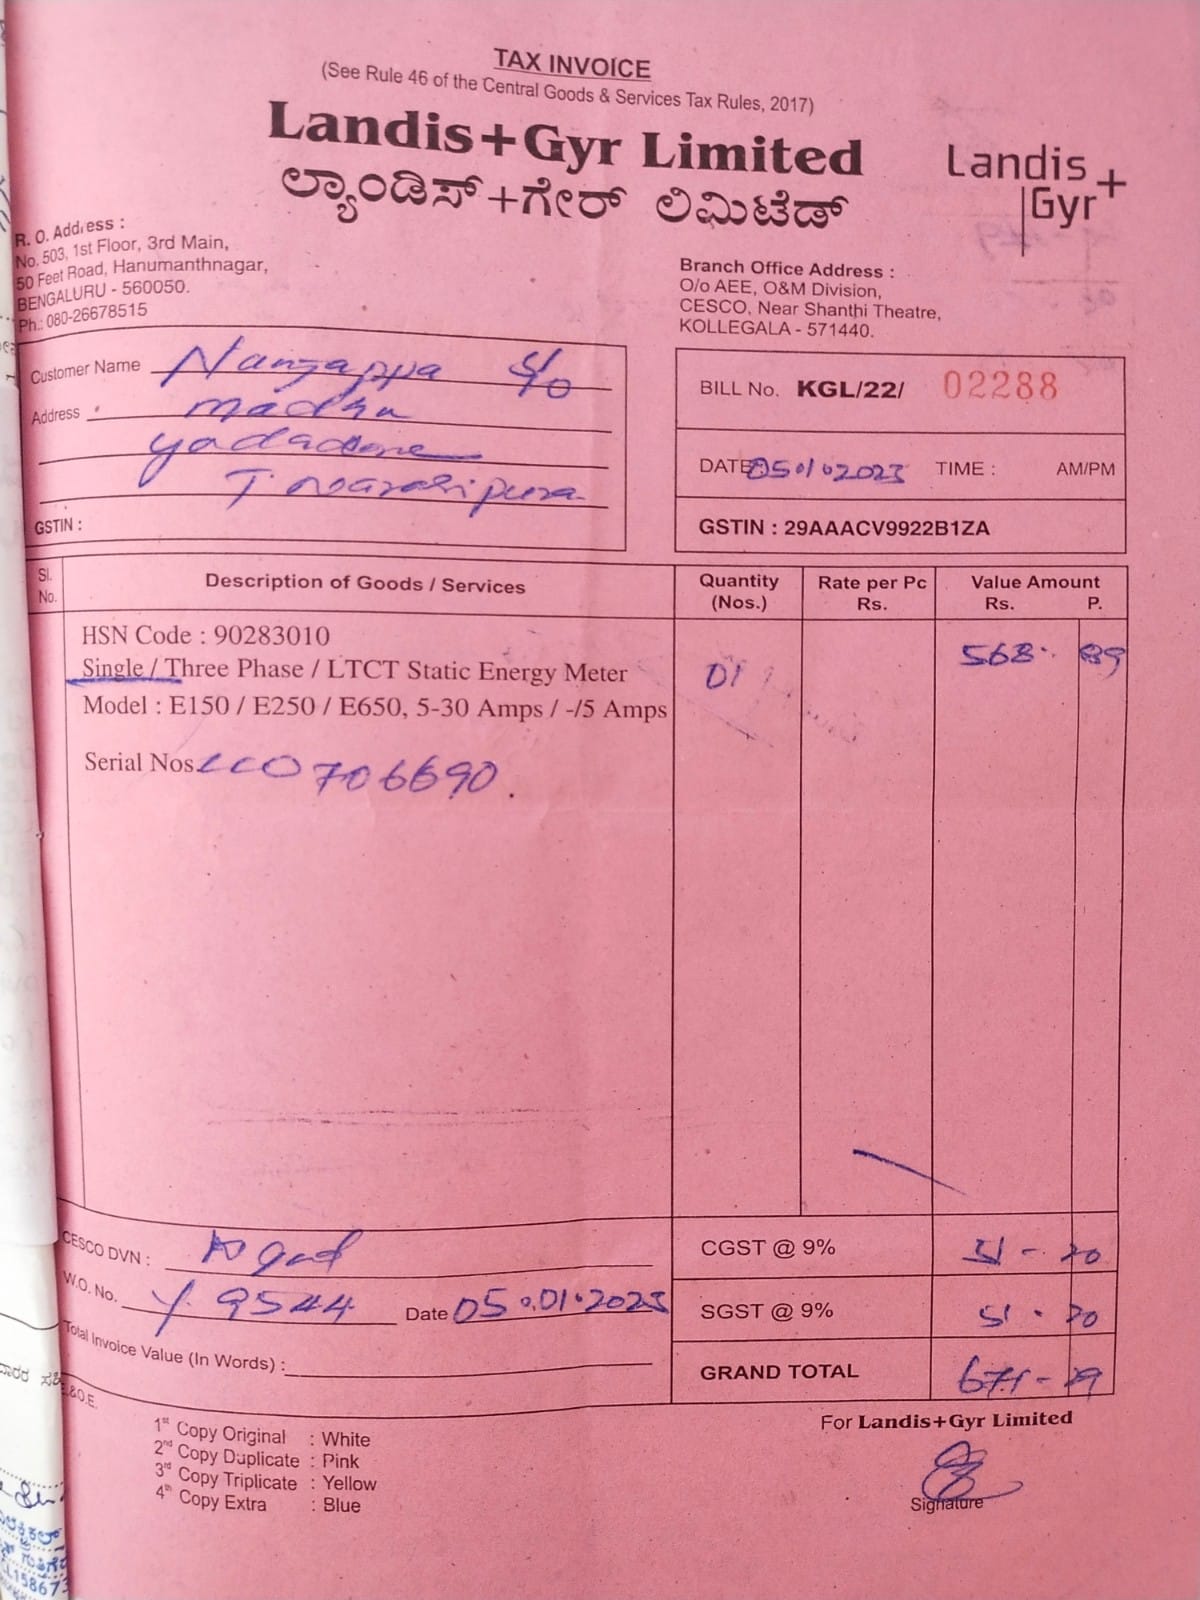 TAX INVOICE
(See Rule 46 of the Central Goods & Services Tax Rules, 2017)
Landis+Gyr Limited
ಲ್ಯಾಂಡಿಸ್+ಗೇರ್ ಲಿಮಿಟೆಡ್
Landis+
Gyr
R. O. Address :
No. 503, 1st Floor, 3rd Main,
50 Feet Road, Hanumanthnagar,
BENGALURU - 560050.
Ph.: 080-26678515
Branch Office Address :
O/o AEE, O&M Division,
CESCO, Near Shanthi Theatre,
KOLLEGALA - 571440.
Customer Name Nanjappa S/o
Address madhu
T. Narasipura
GSTIN :
BILL No. KGL/22/ 02288
DATE 05.01.2023 TIME : AM/PM
GSTIN : 29AAACV9922B1ZA
Sl. No. Description of Goods / Services Quantity (Nos.) Rate per Pc Rs. Value Amount Rs. P.
HSN Code : 90283010
Single / Three Phase / LTCT Static Energy Meter 01 568. 89
Model : E150 / E250 / E650, 5-30 Amps / -/5 Amps
Serial Nos. LCO706690.
CESCO DVN :
CGST @ 9% 51 - 20
W.O. No. 9544 Date 05.01.2023
SGST @ 9% 51 . 20
Total Invoice Value (In Words) :
GRAND TOTAL 671 - 29
E.&O.E.
1st Copy Original : White
2nd Copy Duplicate : Pink
3rd Copy Triplicate : Yellow
4th Copy Extra : Blue
For Landis+Gyr Limited
Signature